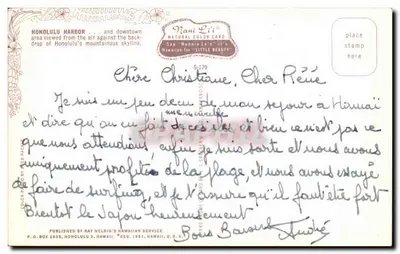 HONOLULU HARBOR . . . and downtown
area viewed from the air against the back-
drop of Honolulu's mountainous skyline.
Nani Li'i
NATURAL COLOR CARD
Say "Nahnie Lee" it's
Hawaiian for "LITTLE BEAUTY"
place
stamp
here
Chère Christiane, Cher Réné
Je suis un peu deçu de mon sejour à Hawaï
et dire qu'on en fait
une merveille
et bien ce n'est pas ce
que nous attendions enfin je suis sorti et nous avons
uniquement profité de la plage, et nous avons essayé
de faire de surfing, et je t'assure qu'il faut être fort
Bientôt le Japon heureusement
Bons Baisers André
PUBLISHED BY RAY HELBIG'S HAWAIIAN SERVICE
P. O. BOX 2835, HONOLULU 3, HAWAII, U. S. A.